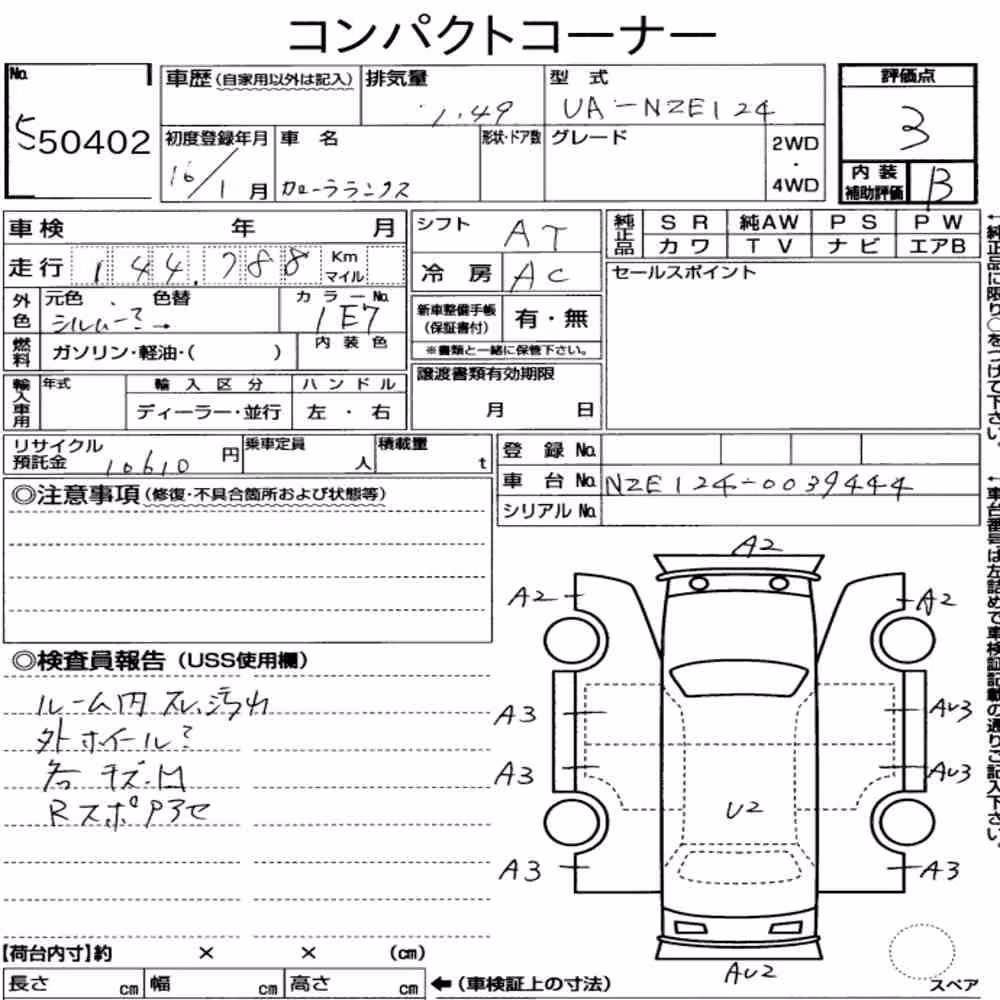 コンパクトコーナー
No. 550402
車歴(自家用以外は記入) 排気量 1.49 型式 UA-NZE124
評価点 3
初度登録年月 16/1月 車名 カローラランクス 形状・ドア数 グレード 2WD・4WD
内装補助評価 B
車検 年 月
走行 144,788 Km マイル
外色 元色 シルバー? 色替 カラーNo. 1E7
燃料 ガソリン・軽油・( ) 内装色
輸入車用 年式 輸入区分 ディーラー・並行 ハンドル 左・右
シフト AT
冷房 AC
新車整備手帳(保証書付) 有・無
※書類と一緒に保管下さい。
譲渡書類有効期限
月 日
純正品 SR 純AW PS PW
カワ TV ナビ エアB
セールスポイント
←純正品に限り○をつけて下さい。
リサイクル預託金 10610 円 乗車定員 人 積載量 t
登録No.
車台No. NZE124-0039444
シリアルNo.
←車台番号は左詰めで車検証記載の通りご記入下さい。
◎注意事項(修復・不具合箇所および状態等)
◎検査員報告(USS使用欄)
ルーム内 スレ、汚れ
外ホイール?
各キズ・凹
Rスポ
A2
A2 A2
A3 AU3
A3 AU3
U2
A3 A3
AU2
スペア
【荷台内寸】約 × × (cm)
長さ cm 幅 cm 高さ cm ←(車検証上の寸法)